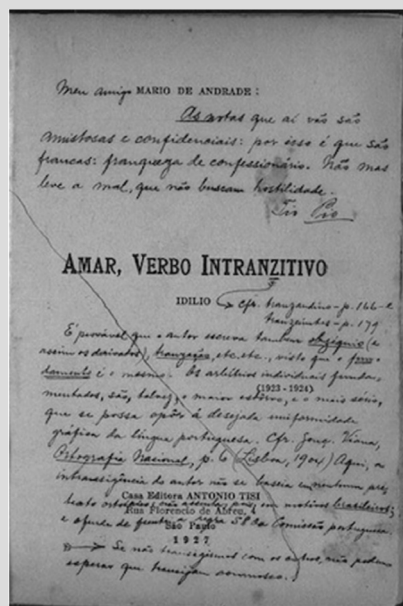 Meu amigo MARIO DE ANDRADE:
As notas que aí vão são
amistosas e confidenciais: por isso é que são
francas: franqueza de confessionário. Não mas
leve a mal, que não buscam hostilidade.
Tio Pio
AMAR, VERBO INTRANZITIVO
IDILIO
Cfr. tranzandino-p. 166-e
tranzeuntes-p. 179
É provável que o autor escreva tambem obzéquio (e
assim os derivados), tranzação, etc. etc., visto que o
damento é o mesmo. Os arbítrios individuais funda-
mentados, são, talvez,
(1923-1924)
o maior estôrvo, e o mais sério,
que se possa opôr á desejada uniformidade
gráfica da lingua portuguesa. Cfr. Gonç. Viana,
Ortografia Nacional, p. 6 (Lisboa, 1904) Aqui, a
intransigência do autor não se baseia em nenhum pre-
Casa Editora ANTONIO TISI
texto em motivos brasileiros;
Rua Florencio de Abreu, 4
e de frente a regra 58 da Comissão portuguesa
São Paulo
1927
Se não transigirmos com os outros, não podemos
esperar que transijam conosco.